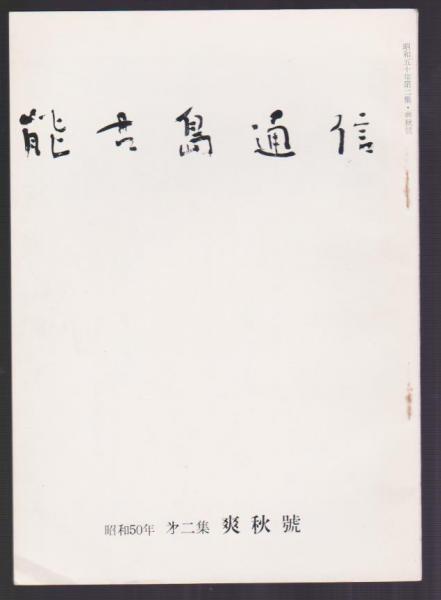 能古島通信
昭和50年 第二集 爽秋號
昭和五十年第二集・爽秋號